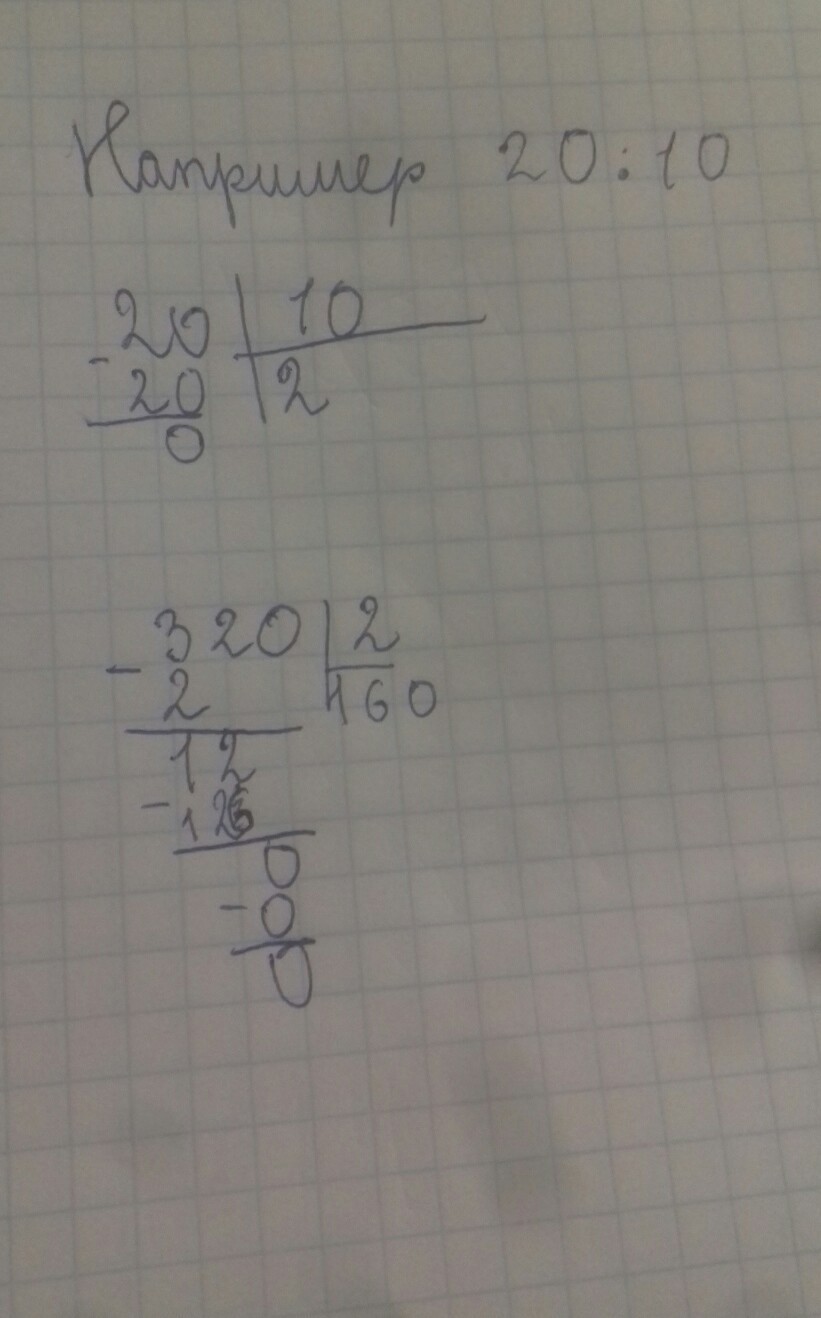 Например 20:10
-20 | 10
20 | 2
0
-320 | 2
2 | 160
12
-12
0
-0
0